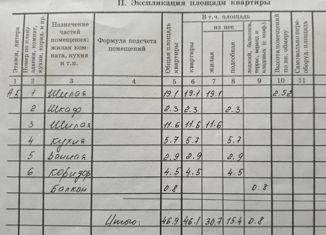 II. Экспликация площади квартиры
Этажи, литера | Номер по плану здания, комнат, кухни, корид. и пр. | Назначение частей помещения: жилая комната, кухня и т.п. | Формула подсчета помещений | Общая площадь квартиры | В т.ч. площадь квартиры | из нее жилая | подсобная | лоджий, балконов, террас, | Высота помещений по вн. обмеру | Самовольно переоборуд. площадь
1 2 3 4 5 6 7 8 9 10 11
1 Жилая 19.1 19.1 19.1 2.52
2 Шкаф 2.3 2.3 2.3
3 Жилая 11.6 11.6 11.6
4 Кухня 5.7 5.7 5.7
5 Ванная 2.9 2.9 2.9
6 Коридор 4.5 4.5 4.5
Балкон 0.8 0.8
Итого: 46.9 46.1 30.7 15.4 0.8